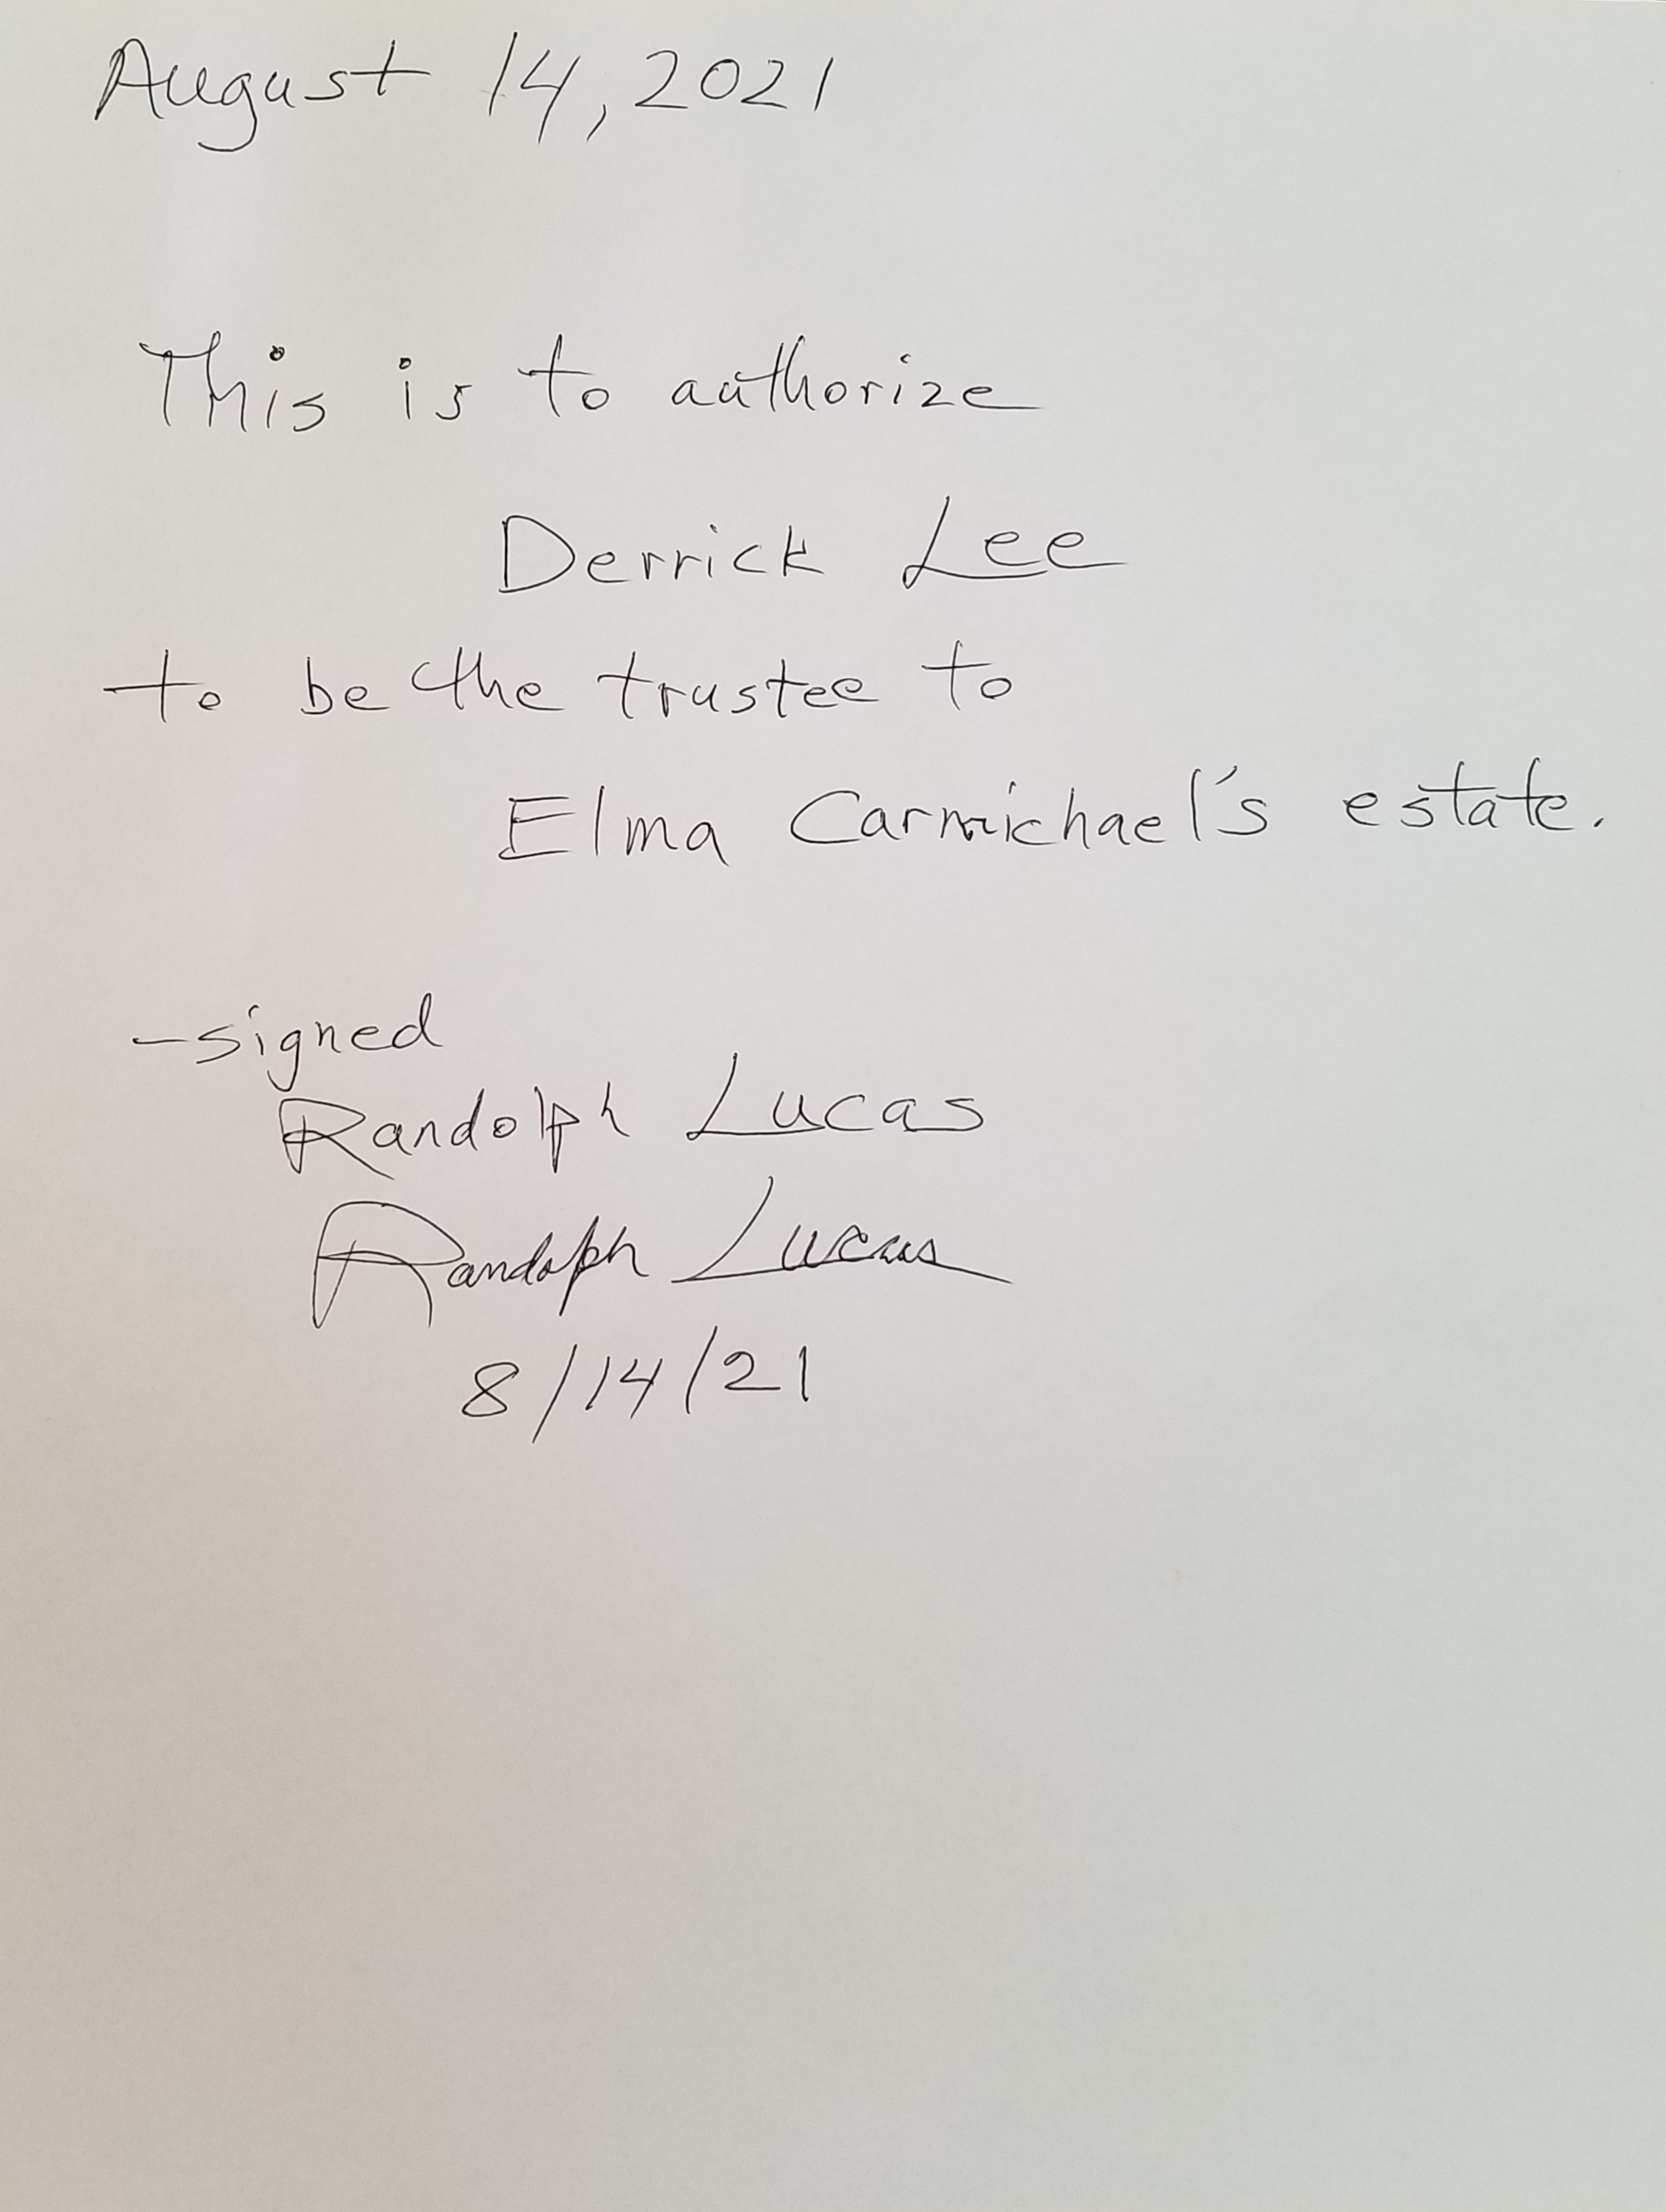 August 14, 2021
This is to authorize
Derrick Lee
to be the trustee to
Elma Carmichael's estate.
-signed
Randolph Lucas
Randolph Lucas
8/14/21